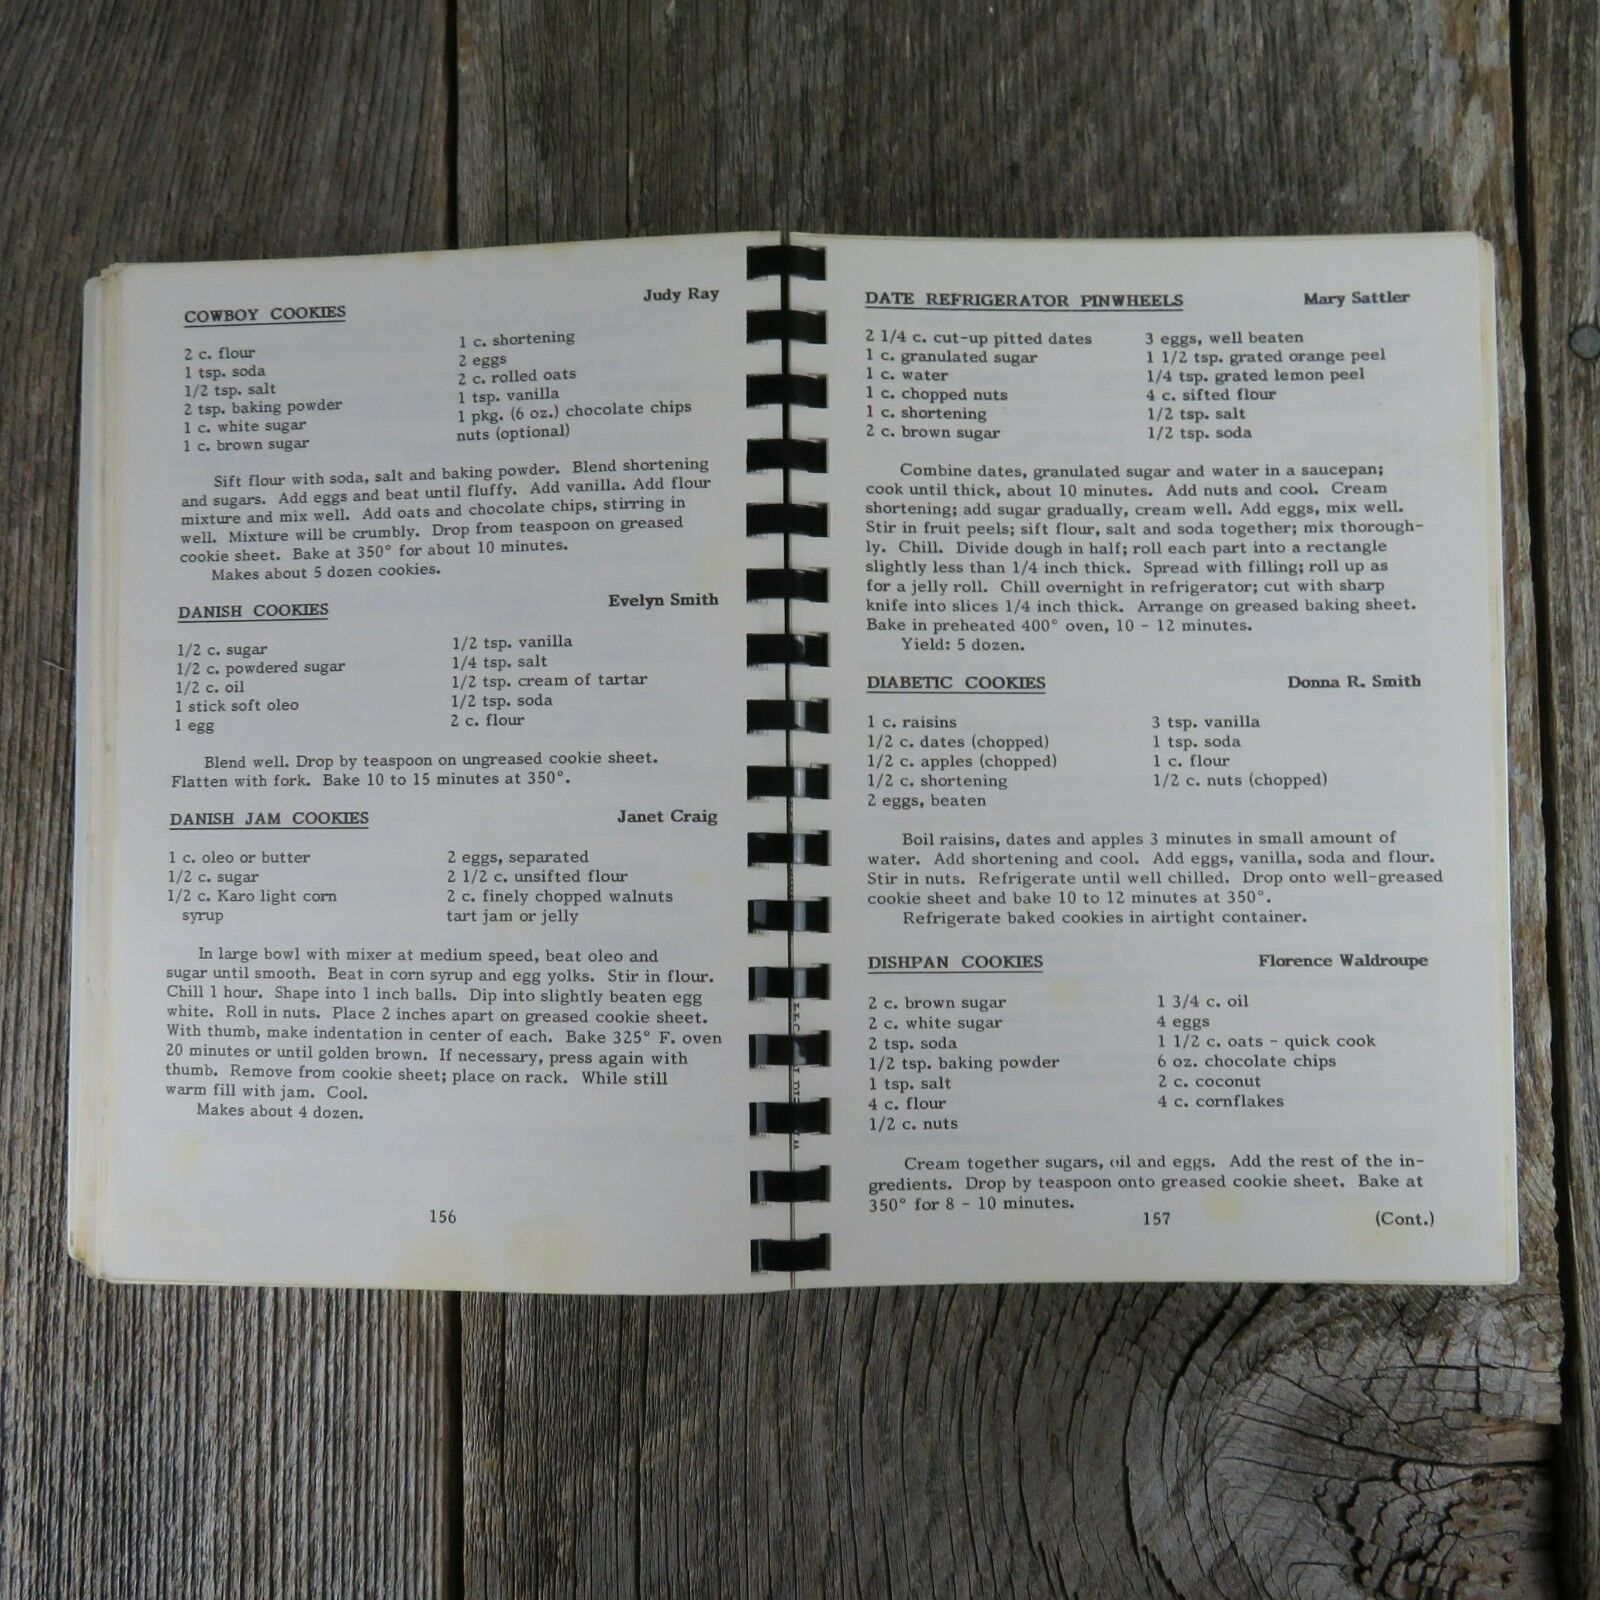 COWBOY COOKIES Judy Ray
2 c. flour
1 tsp. soda
1/2 tsp. salt
2 tsp. baking powder
1 c. white sugar
1 c. brown sugar
1 c. shortening
2 eggs
2 c. rolled oats
1 tsp. vanilla
1 pkg. (6 oz.) chocolate chips
nuts (optional)
Sift flour with soda, salt and baking powder. Blend shortening
and sugars. Add eggs and beat until fluffy. Add vanilla. Add flour
mixture and mix well. Add oats and chocolate chips, stirring in
well. Mixture will be crumbly. Drop from teaspoon on greased
cookie sheet. Bake at 350° for about 10 minutes.
Makes about 5 dozen cookies.
DANISH COOKIES Evelyn Smith
1/2 c. sugar
1/2 c. powdered sugar
1/2 c. oil
1 stick soft oleo
1 egg
1/2 tsp. vanilla
1/4 tsp. salt
1/2 tsp. cream of tartar
1/2 tsp. soda
2 c. flour
Blend well. Drop by teaspoon on ungreased cookie sheet.
Flatten with fork. Bake 10 to 15 minutes at 350°.
DANISH JAM COOKIES Janet Craig
1 c. oleo or butter
1/2 c. sugar
1/2 c. Karo light corn
syrup
2 eggs, separated
2 1/2 c. unsifted flour
2 c. finely chopped walnuts
tart jam or jelly
In large bowl with mixer at medium speed, beat oleo and
sugar until smooth. Beat in corn syrup and egg yolks. Stir in flour.
Chill 1 hour. Shape into 1 inch balls. Dip into slightly beaten egg
white. Roll in nuts. Place 2 inches apart on greased cookie sheet.
With thumb, make indentation in center of each. Bake 325° F. oven
20 minutes or until golden brown. If necessary, press again with
thumb. Remove from cookie sheet; place on rack. While still
warm fill with jam. Cool.
Makes about 4 dozen.
156
DATE REFRIGERATOR PINWHEELS Mary Sattler
2 1/4 c. cut-up pitted dates
1 c. granulated sugar
1 c. water
1 c. chopped nuts
1 c. shortening
2 c. brown sugar
3 eggs, well beaten
1 1/2 tsp. grated orange peel
1/4 tsp. grated lemon peel
4 c. sifted flour
1/2 tsp. salt
1/2 tsp. soda
Combine dates, granulated sugar and water in a saucepan;
cook until thick, about 10 minutes. Add nuts and cool. Cream
shortening; add sugar gradually, cream well. Add eggs, mix well.
Stir in fruit peels; sift flour, salt and soda together; mix thorough-
ly. Chill. Divide dough in half; roll each part into a rectangle
slightly less than 1/4 inch thick. Spread with filling; roll up as
for a jelly roll. Chill overnight in refrigerator; cut with sharp
knife into slices 1/4 inch thick. Arrange on greased baking sheet.
Bake in preheated 400° oven, 10 - 12 minutes.
Yield: 5 dozen.
DIABETIC COOKIES Donna R. Smith
1 c. raisins
1/2 c. dates (chopped)
1/2 c. apples (chopped)
1/2 c. shortening
2 eggs, beaten
3 tsp. vanilla
1 tsp. soda
1 c. flour
1/2 c. nuts (chopped)
Boil raisins, dates and apples 3 minutes in small amount of
water. Add shortening and cool. Add eggs, vanilla, soda and flour.
Stir in nuts. Refrigerate until well chilled. Drop onto well-greased
cookie sheet and bake 10 to 12 minutes at 350°.
Refrigerate baked cookies in airtight container.
DISHPAN COOKIES Florence Waldroupe
2 c. brown sugar
2 c. white sugar
2 tsp. soda
1/2 tsp. baking powder
1 tsp. salt
4 c. flour
1/2 c. nuts
1 3/4 c. oil
4 eggs
1 1/2 c. oats - quick cook
6 oz. chocolate chips
2 c. coconut
4 c. cornflakes
Cream together sugars, oil and eggs. Add the rest of the in-
gredients. Drop by teaspoon onto greased cookie sheet. Bake at
350° for 8 - 10 minutes.
157 (Cont.)